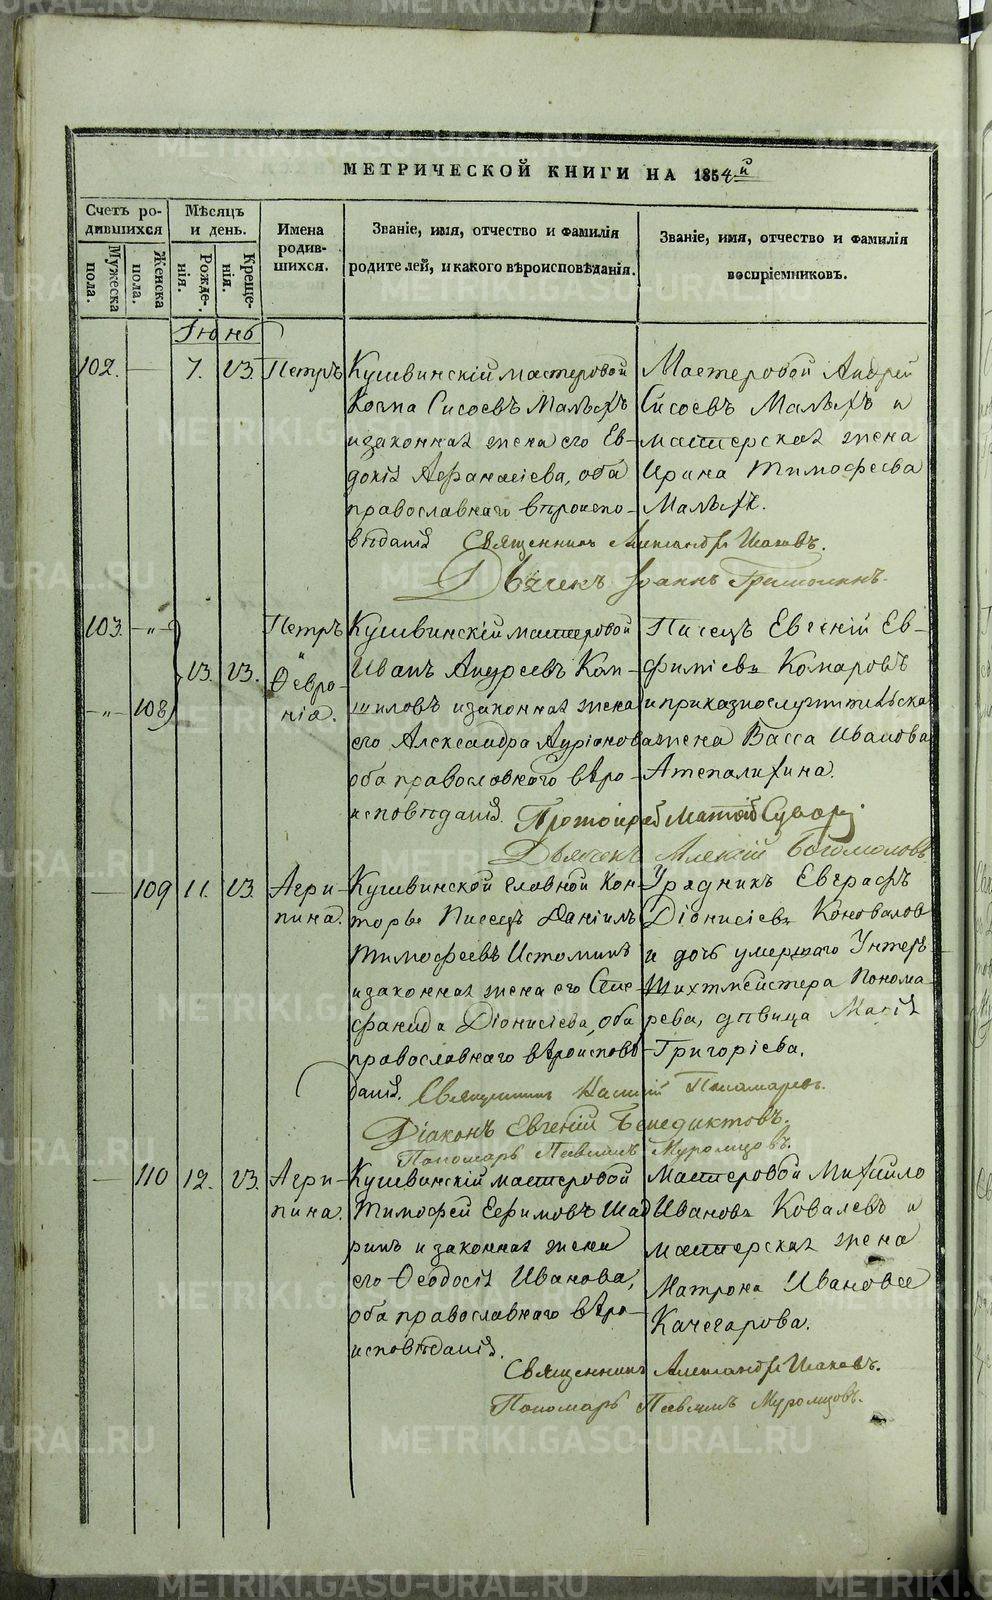 МЕТРИЧЕСКОЙ КНИГИ НА 1854й
Счетъ родившихся
Мѣсяцъ и день.
Имена родившихся.
Званіе, имя, отчество и фамилія родителей, и какого вѣроисповѣданія.
Званіе, имя, отчество и фамилія воспріемниковъ.
Мужеска пола.
Женска пола.
Рожденія.
Крещенія.
Іюнь
102. — 7. 13. Петръ
Кушвинскій мастеровой
Косма Сисоевъ Малыхъ
и законная жена его Ев-
докія Афанасіева, оба
православнаго вѣроиспо-
вѣданія
Мастеровой Андрей
Сисоевъ Малыхъ и
мастерская жена
Ирина Тимофеева
Малыхъ.
Священникъ Александръ Исаковъ.
Дьячекъ Іоаннъ
103. —„— Петръ
—„— 108 13. 13. Феврo-
нія.
Кушвинскій мастеровой
Иванъ Андреевъ Кап-
шиловъ и законная жена
его Александра Андріонова
оба православнаго вѣро-
исповѣданія.
Писецъ Евгеній Ев-
фиміевъ Комаровъ
и приказнослужительска
жена Васса Иванова
Атепалихина.
Протоіерей
Дьячекъ Алексій Богомоловъ
— 109 11. 13. Агри-
пина.
Кушвинской главной Кон-
торы Писецъ Даніилъ
Тимофеевъ Истоминъ
и законная жена его Сте-
фанида Діонисіева, оба
православнаго вѣроисповѣ-
данія.
Урядникъ Евграфъ
Діонисіевъ Коноваловъ
и дочь умершаго Унтеръ
Шихтмейстера Понома-
рева, дѣвица Марія
Григоріева.
Священникъ Пономаревъ.
Діаконъ Евгеній Бенедиктовъ.
Пономарь Павелъ Муромцовъ.
— 110 12. 13. Агри-
пина.
Кушвинскій мастеровой
Тимофей Ефимовъ Шад
ринъ и законная жена
его Феодосія Иванова,
оба православнаго вѣро-
исповѣданія.
Мастеровой Михайло
Ивановъ Ковалевъ и
мастерская жена
Матрона Иванова
Качегарова.
Священникъ Александръ Исаковъ.
Пономарь Павелъ Муромцовъ.
METRIKI.GASO-URAL.RU